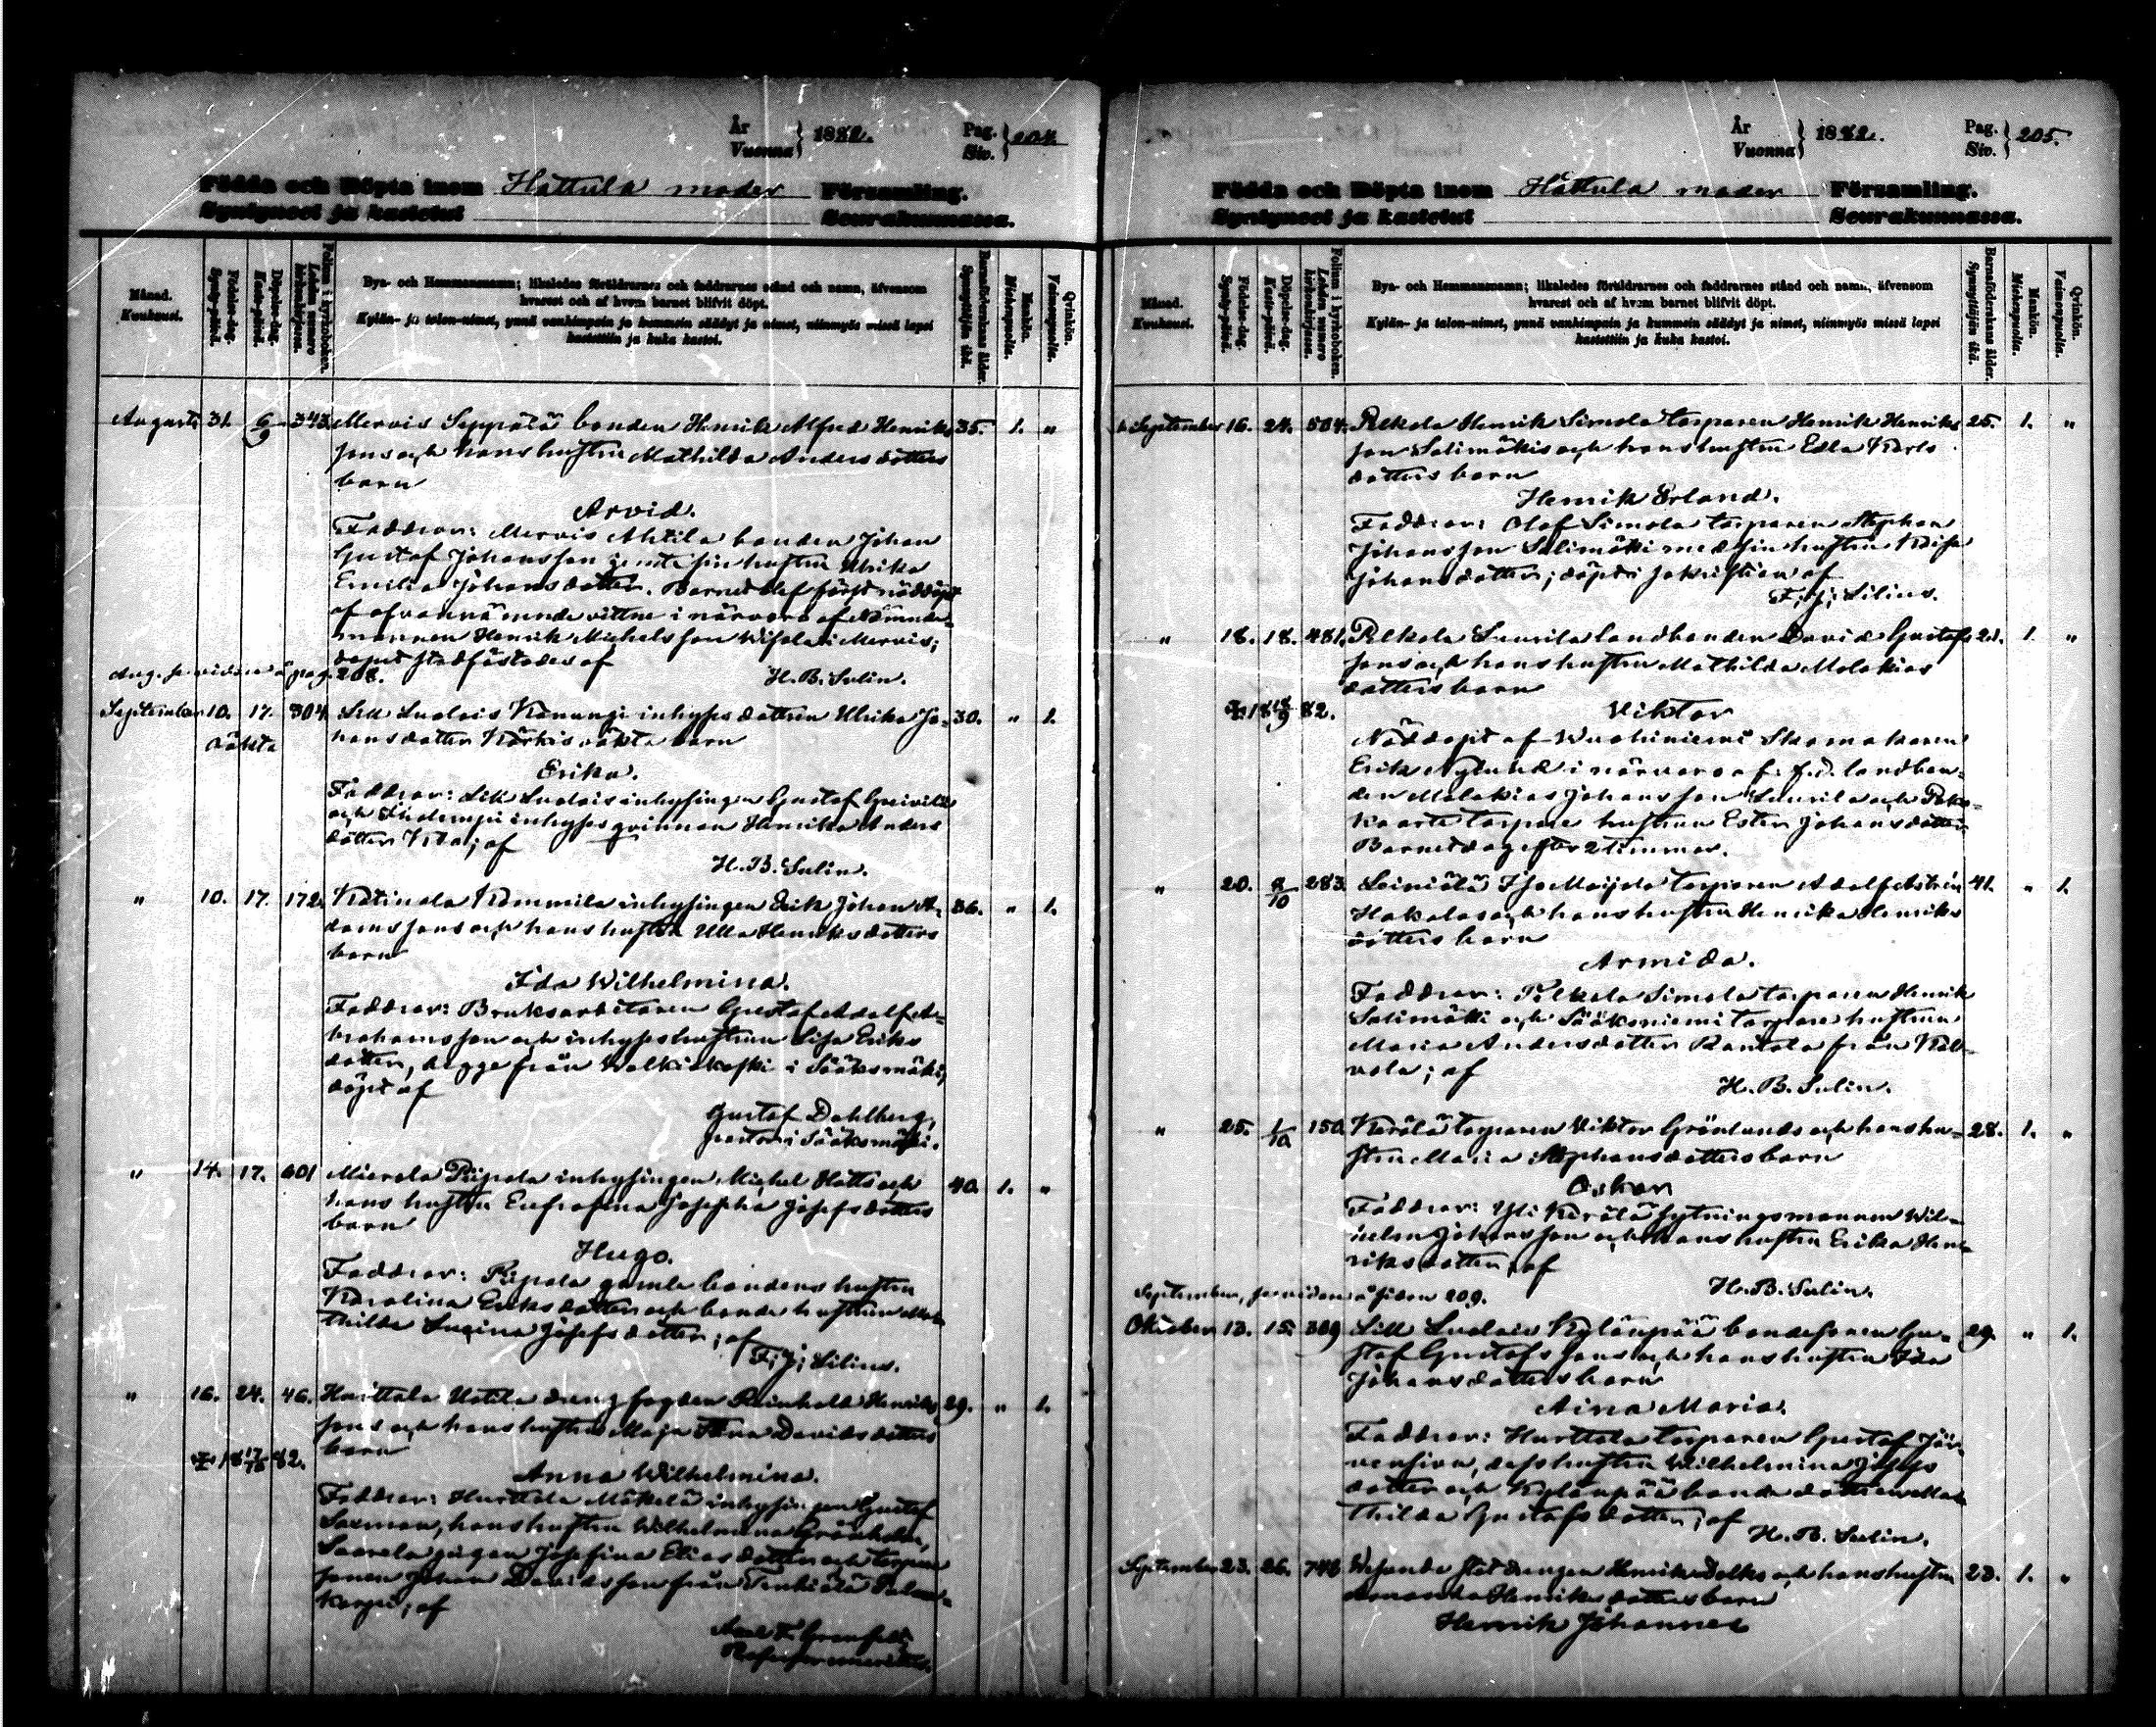 År
Vuonna } 1882.
Pag.
Siv. } 204
Födda och Döpta inom Hattula moder Församling.
Syntyneet ja kastetut Seurakunnassa.
Månad.
Kuukausi.
Födelse-dag.
Synty-päivä.
Döpelse-dag.
Kaste-päivä.
Folium i kyrkoboken.
Lehden numero kirkonkirjassa.
Bya- och Hemmansnamn; likaledes föräldrarnes och faddrarnes stånd och namn, äfvensom
hvarest och af hvem barnet blifvit döpt.
Kylän- ja talon-nimet, ynnä vanhimpain ja kummein säädyt ja nimet, niinmyös missä lapsi
kastettiin ja kuka kastoi.
Barnaföderskans ålder.
Synnyttäjän ikä.
Mankön.
Miehenpuolta.
Qvinkön.
Vaimonpuolta.
Augusti 31. 6/9 343 Mervis Seppälä bonden Henrik Alfred Henriks 35. 1. "
sons och hans hustru Mathilda Anders dotters
barn
Arvid.
Faddrar: Mervis Ahtila bonden Johan
Gustaf Johansson jemte sin hustru Ulrika
Emilia Johansdotter. Barnet blef först nöddöpt
af ofvannämnde vittne i närvaro af Nämnde-
mannen Henrik Michelsson Wisala i Mervis;
dopet stadfästades af
H. B. Sulin.
Aug. se vidare å pag. 208.
September 10. 17. 304 Lill Luolais Kanungi inhyses dottren Ulrika Jo- 30. " 1.
oäkta
hansdotter Kärkis oäkta barn
Erika.
Faddrar: Lill Luolais inhysingen Gustaf
och inhyses qvinnan Henrika Anders
dotter; af
H. B. Sulin.
" 10. 17. 172. Katinala Kammila inhysingen Erik Johan A- 36. " 1.
damssons och hans hustru Ulla Henriksdotters
barn
Ida Wilhelmina.
Faddrar: Bruksarbetaren Gustaf Adolf A-
brahamsson och inhyseshustrun Lisa Eriks
dotter, begge från Walkiakoski i Sääksmäki;
döpt af
Gustaf Dahlberg,
pastor i Sääksmäki.
" 14. 17. 601 Mierola Piipola inhysingen Michel Hatts och 40. 1. "
hans hustru Eufrosina Josefina Josefsdotters
barn
Hugo.
Faddrar: Piipola gamla bondens hustru
Karolina Eriksdotter och bonde hustrun Mat-
hilda Lucina Josefsdotter; af
F. J. Lilius.
" 16. 24. 46. Hurttala Uotila drengfogden Reinhold Henriks 29. " 1.
sons och hans hustru Maja Stina Davidsdotters
barn
Anna Wilhelmina.
Faddrar: Hurttala Mäkelä inhysingen Gustaf
Saxman, hans hustru Wilhelmina
Saarela pigan Josefina Eliasdotter och torpare
sonen Johan Davidsson från Tenhiälä
af
Axel F. Granfelt

År
Vuonna } 1882.
Pag.
Siv. } 205.
Födda och Döpta inom Hattula moder Församling.
Syntyneet ja kastetut Seurakunnassa.
Månad.
Kuukausi.
Födelse-dag.
Synty-päivä.
Döpelse-dag.
Kaste-päivä.
Folium i kyrkoboken.
Lehden numero kirkonkirjassa.
Bya- och Hemmansnamn; likaledes föräldrarnes och faddrarnes stånd och namn, äfvensom
hvarest och af hvem barnet blifvit döpt.
Kylän- ja talon-nimet, ynnä vanhimpain ja kummein säädyt ja nimet, niinmyös missä lapsi
kastettiin ja kuka kastoi.
Barnaföderskans ålder.
Synnyttäjän ikä.
Mankön.
Miehenpuolta.
Qvinkön.
Vaimonpuolta.
September 16. 24. 504. Pelkola Henrik Simola torparen Henrik Henriks 25. 1. "
son Salimäkis och hans hustru Edla Karls
dotters barn
Henrik Erland.
Faddrar: Olof Simola torparen Stephan
Johansson Salimäki med sin hustru Kaisa
Johansdotter; döpt i sakristian af
F. J. Lilius.
" 18. 18. 481. Pelkola Laurila landbonden David Gustafs 21. 1. "
sons och hans hustru Mathilda Malakias
dotters barn
Viktor
Nöddöpt af Wuohiniemi Skomakaren
Erik Nylund i närvaro af f.d. landbon-
den Malakias Johansson Laurila och
torpare hustrun Ester Johansdotter
Barnet dog efter 2 timmar.
" 20. 8/10 283 Leiniälä Iso Maijala torparen Adolf 41. " 1.
Hakalas och hans hustru Henrika Henriks
dotters barn
Armida.
Faddrar: Pelkola Simola torparen Henrik
Salimäki och Sääksniemi torpare hustrun
Maria Andersdotter Rantala från Kal-
vola; af
H. B. Sulin.
" 25. 1/10 150 Kerälä torparen Viktor Grönlunds och hans hu- 28. 1. "
stru Maria Stephansdotters barn
Oskar
Faddrar: Yli Kerälä sytningsmannen Wil-
helm Johansson och hans hustru Erika Hen-
riksdotter; af
H. B. Sulin.
September, se vidare å sidan 209.
Oktober 13. 15. 309 Lill Luolais Kylänpää bondesonen Gu- 29. " 1.
staf Gustafssons och hans hustru Ida
Johansdotters barn
Aina Maria.
Faddrar: Hurttala torparen Gustaf Jär-
vensivu, dess hustru Wilhelmina Josefs
dotter och Kylänpää bonde dottren Mat-
hilda Gustafsdotter; af
H. B. Sulin.
September 23. 26. 746 stat drengen Henrik och hans hustru 23. 1. "
Amanda Henriksdotters barn
Henrik Johannes